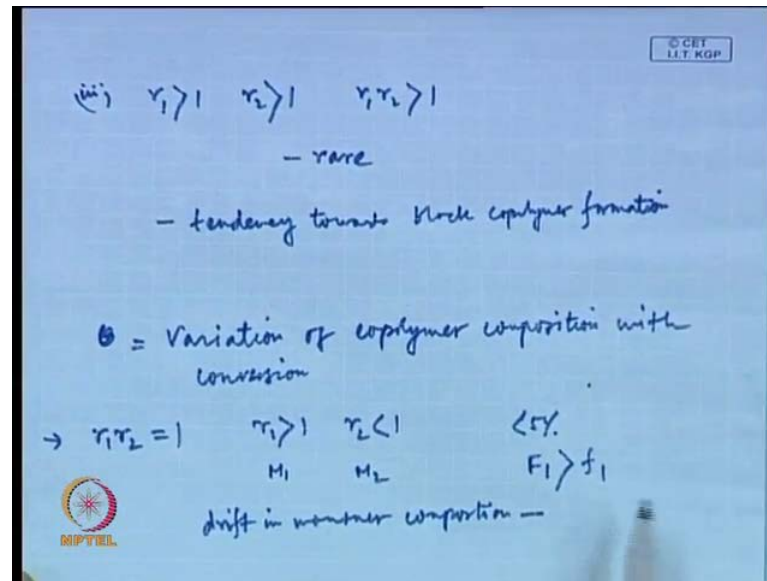 © CET
I.I.T. KGP
(iii) r₁>1 r₂>1 r₁r₂>1
- rare
- tendency towards block copolymer formation
= Variation of copolymer composition with
conversion
→ r₁r₂=1 r₁>1 r₂<1 <5%
M₁ M₂ F₁>f₁
drift in monomer composition —
NPTEL